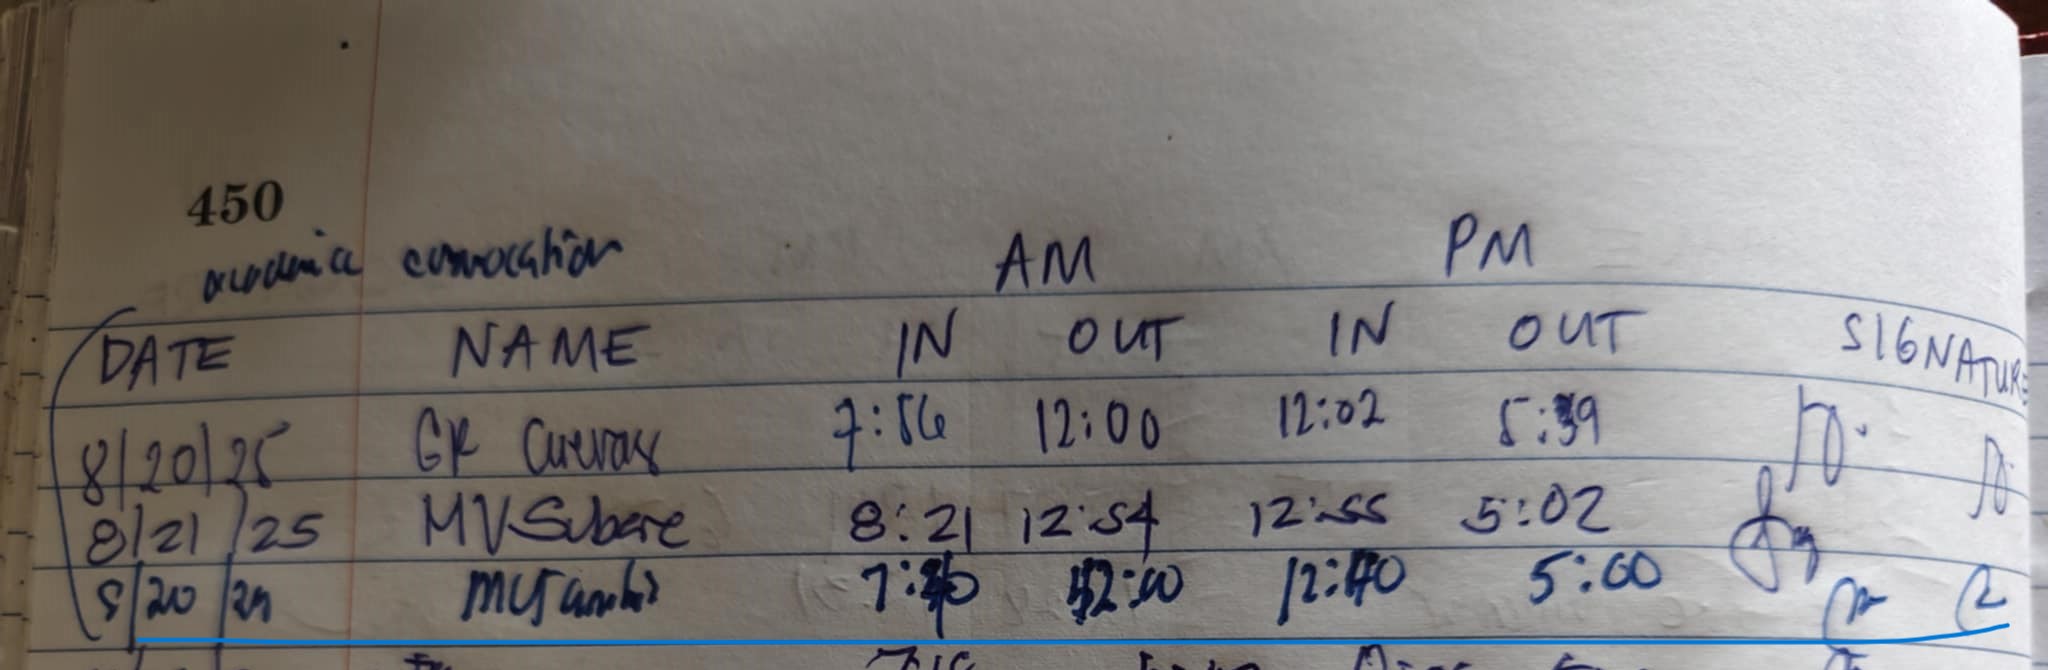 450
academic convocation AM PM
DATE NAME IN OUT IN OUT SIGNATURE
8/20/25 GR Cuevas 7:56 12:00 12:02 5:39
8/21/25 MVSubere 8:21 12:54 12:55 5:02
8/20/25 12:00 12:40 5:00